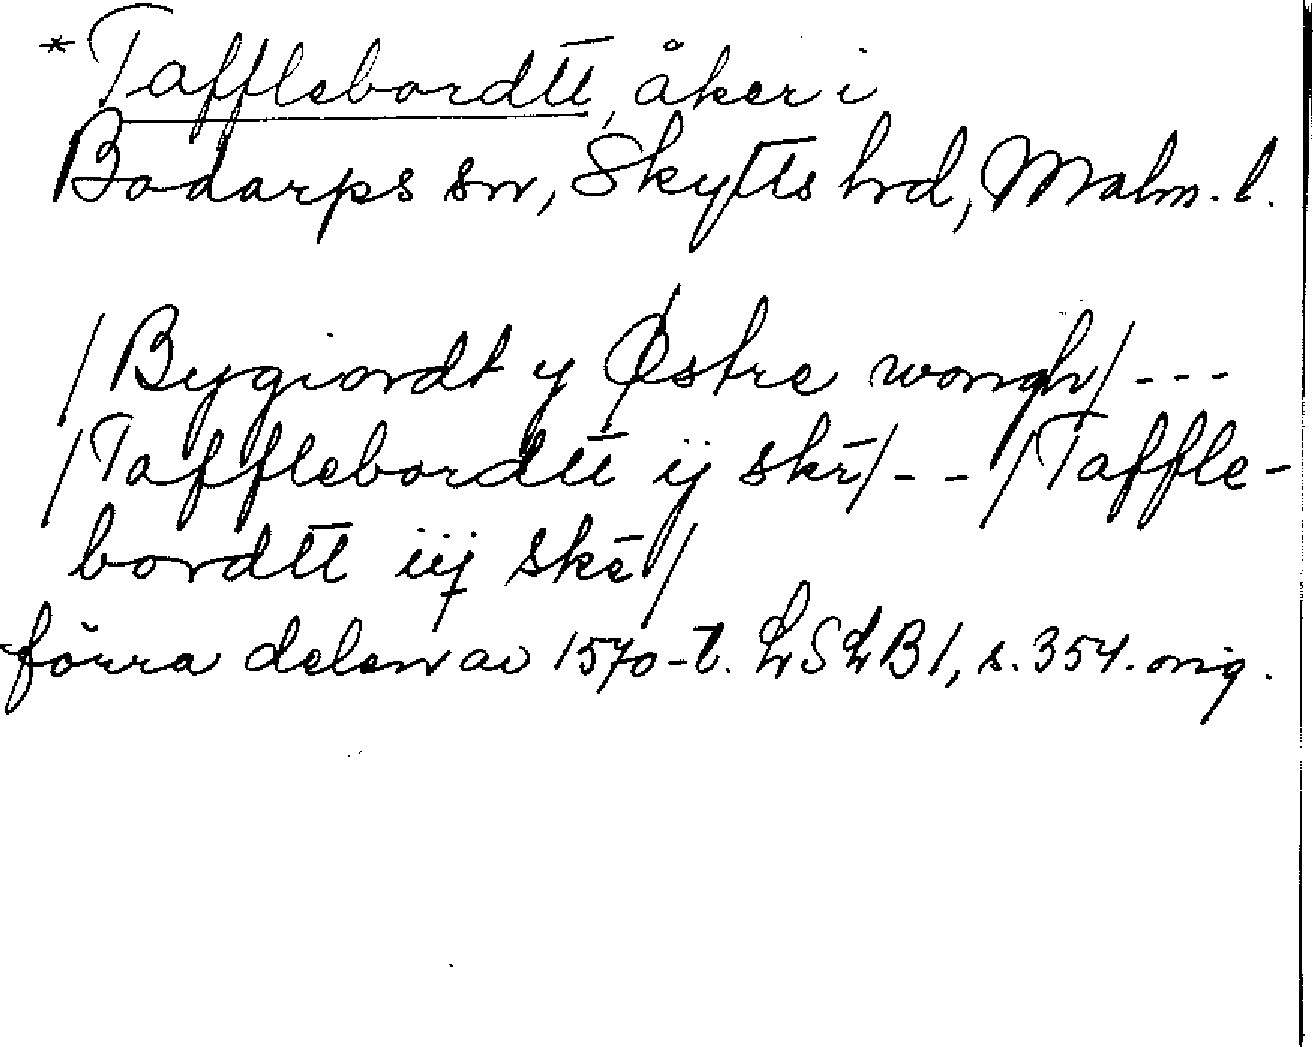 *Tafflebordtt, åker i
Bodarps sn, Skytts hrd, Malm. l.
/Bygiordt y Østre wongh/ - - -
/Tafflebordtt ij skr̄/ - - /Taffle-
bordtt iij skē/
förra delen av 1570-t. LSLB1, s. 354. orig.